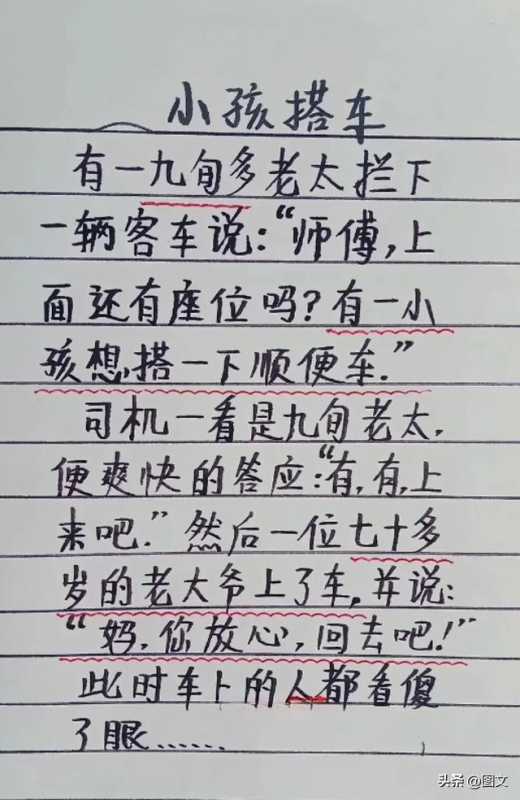 小孩搭车
有一九旬多老太拦下
一辆客车说:“师傅,上
面还有座位吗?有一小
孩想搭一下顺便车.”
司机一看是九旬老太,
便爽快的答应:“有,有,上
来吧.”然后一位七十多
岁的老大爷上了车,并说:
“妈,你放心,回去吧!”
此时车卜的人都看傻
了眼……
头条 @图文